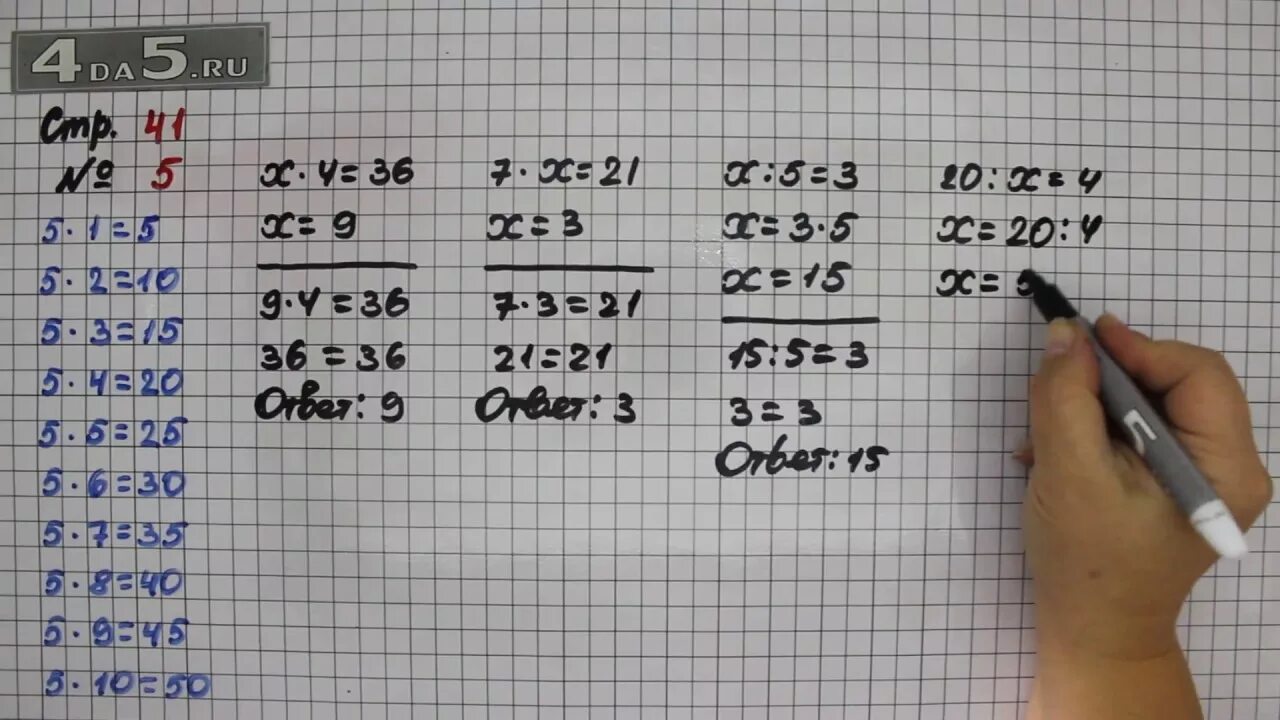 4DA5.RU
Стр. 41
№ 5
5 · 1 = 5
5 · 2 = 10
5 · 3 = 15
5 · 4 = 20
5 · 5 = 25
5 · 6 = 30
5 · 7 = 35
5 · 8 = 40
5 · 9 = 45
5 · 10 = 50
x · 4 = 36
x = 9
9 · 4 = 36
36 = 36
Ответ: 9
7 · x = 21
x = 3
7 · 3 = 21
21 = 21
Ответ: 3
x : 5 = 3
x = 3 · 5
x = 15
15 : 5 = 3
3 = 3
Ответ: 15
20 : x = 4
x = 20 : 4
x =